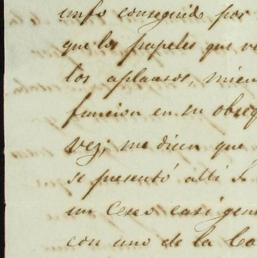 unfo conseguido por
que los papeles que
los aplausos, mien
funcion en su obseq
vez; me dicen que
se presentó allí
un Ceso casi gen
con uno de la